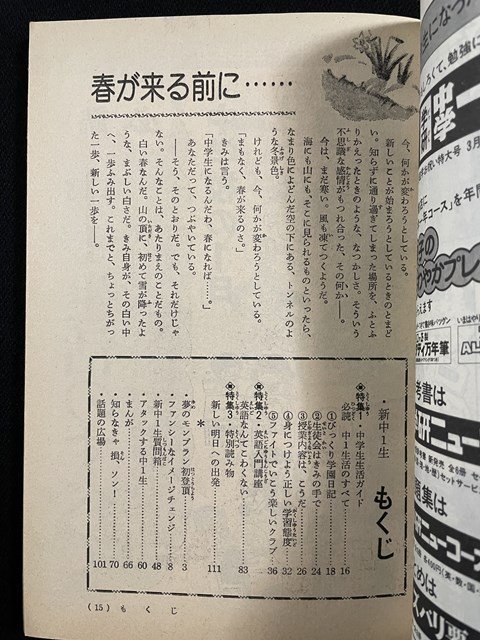 春が来る前に……
今、何かが変わろうとしている。
新しいことが始まろうとしているときのとまど
い。知らずに通り過ぎてしまった場所を、ふとふ
りかえったときのような、なつかしさ。そういう
不思議な感情がもつれ合った、その何か――。
今は、まだ寒い。風も凍てつくようだ。
海にも山にも、そこに見られるものといったら、
なまり色によどんだ空の下にある、トンネルのよ
うな冬景色。
けれども、今、何かが変わろうとしている。
「まもなく、春が来るのさ。」
きみは言う。
「中学生になるんだわ、春になれば……。」
あなただって、つぶやいている。
――そう、そのとおりだ。でも、それだけじゃ
ない。そんなことは、あたりまえのことだもの。
白い春なんだ。山の頂に、初めて雪が降ったよ
うな、まぶしい白さだ。きみ自身が、その白い中
へ、一歩ふみ出す。これまでと、ちょっとちがっ
た一歩、新しい一歩を――。
・新中1生 もくじ
特集1・中学生生活ガイド
必読 中1生活のすべて 16
①びっくり学園日記 18
②生徒会はきみの手で 24
③授業内容は、こうだ 26
④身につけよう正しい学習態度 32
⑤ファイトでいこう楽しいクラブ 36
特集2・英語入門講座
英語なんてこわくない 83
特集3・特別読み物
新しい明日への出発 111
＊
・夢のモンブラン初登頂 3
・ファンシーなイメージチェンジ 8
・新中1生質問箱 48
・アタックする中1生 60
・まんが 66
・知らなきゃ損、ソン！ 70
・話題の広場 101
(15) もくじ